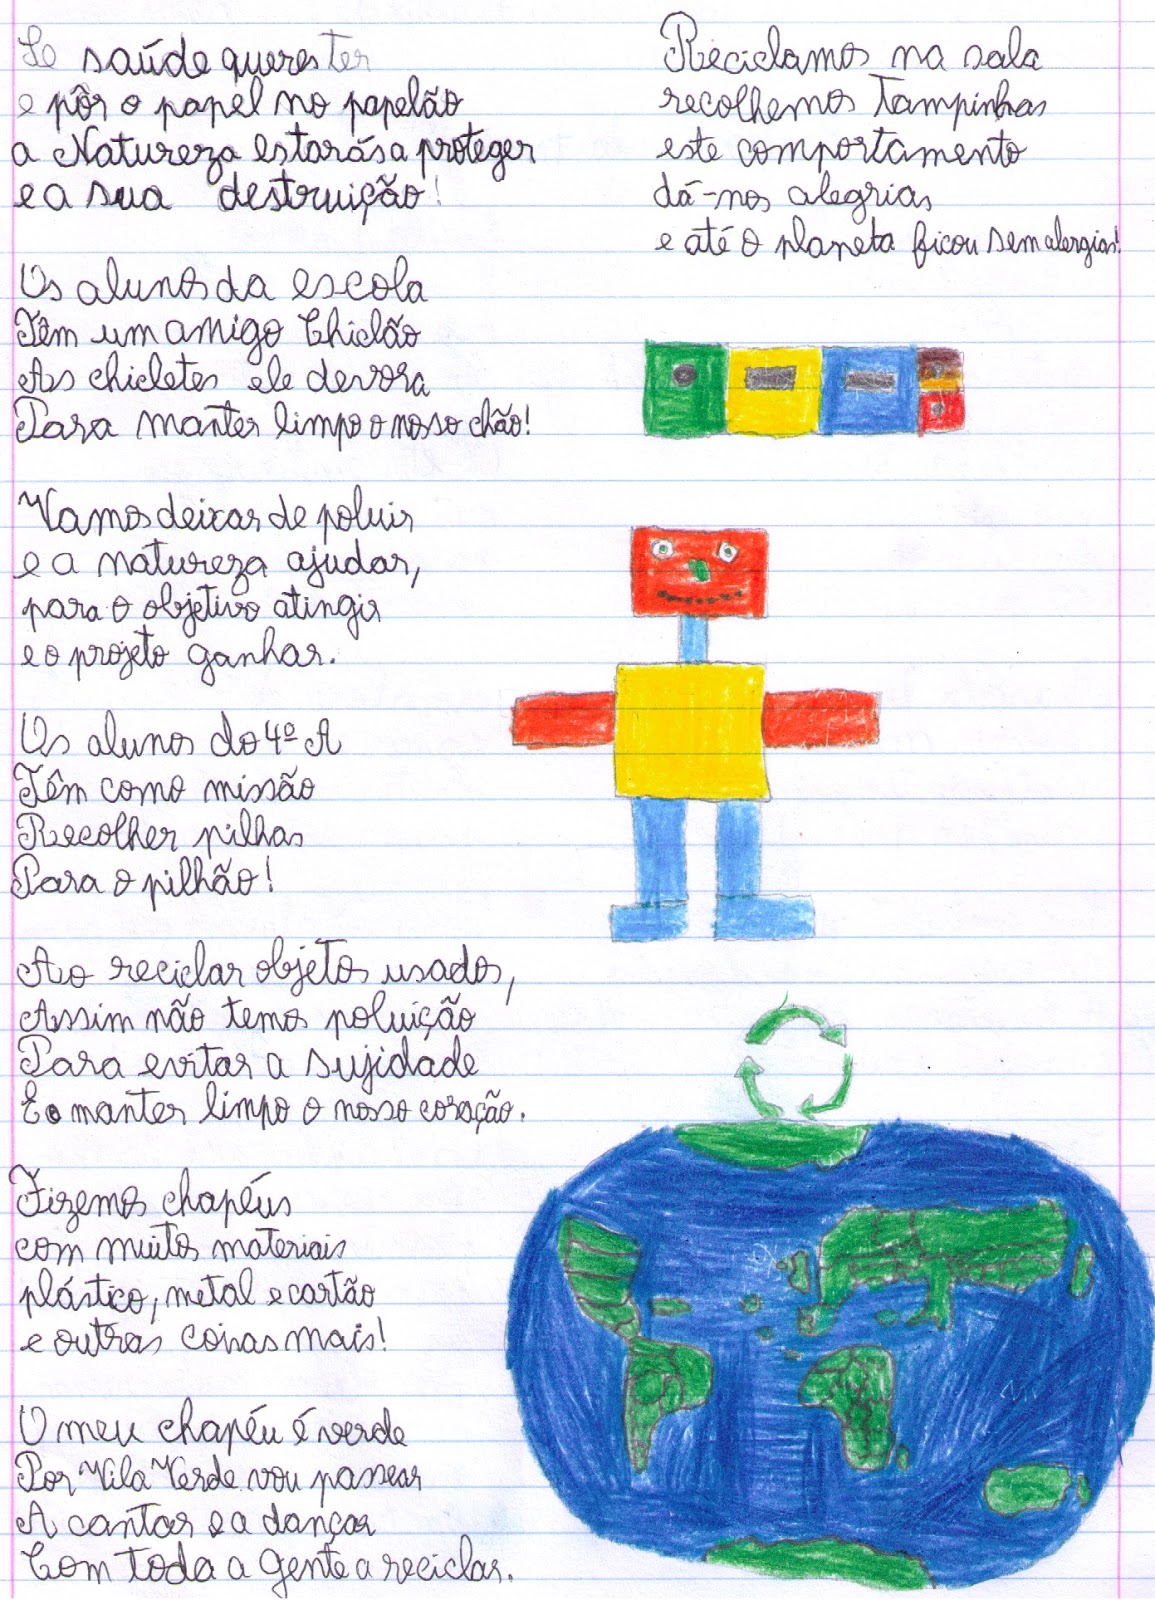 Se saúde queres ter
e pôr o papel no papelão
a Natureza estarás a proteger
e a sua destruição!
Os alunos da escola
Têm um amigo Chiclão
As chicletes ele devora
Para manter limpo o nosso chão!
Vamos deixar de poluir
e a natureza ajudar,
para o objetivo atingir
e o projeto ganhar.
Os alunos do 4º A
Têm como missão
Recolher pilhas
Para o pilhão!
Ao reciclar objetos usados,
Assim não temos poluição
Para evitar a sujidade
E manter limpo o nosso coração.
Fizemos chapéus
com muitos materiais
plástico, metal e cartão
e outras coisas mais!
O meu chapéu é verde
Por Vila Verde vou passear
A cantar e a dançar
Com toda a gente a reciclar.
Reciclamos na sala
recolhemos tampinhas
este comportamento
dá-nos alegrias
e até o planeta ficou sem alergias!